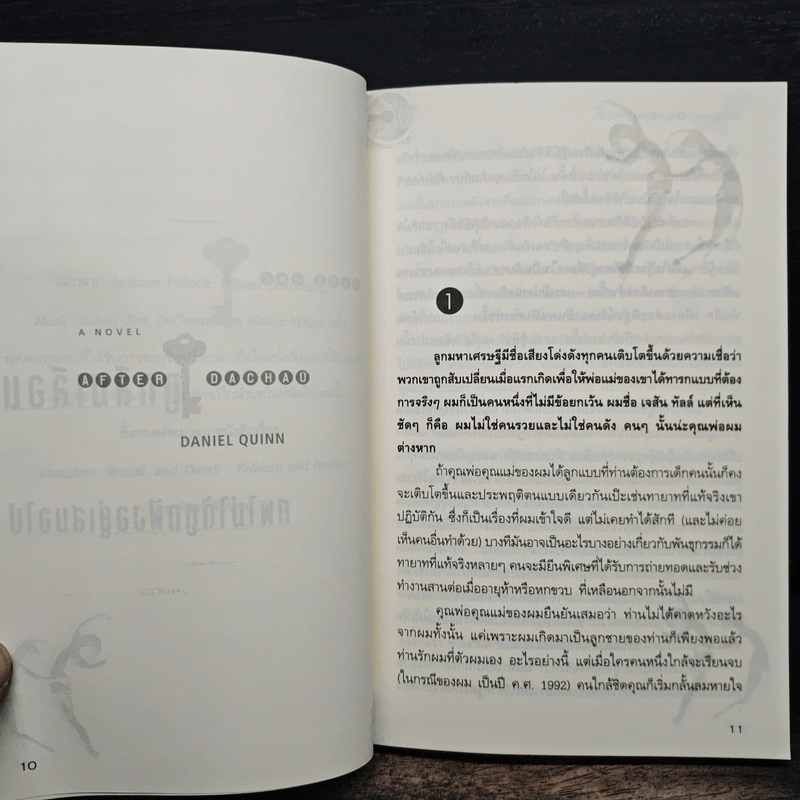 A NOVEL
AFTER DACHAU
DANIEL QUINN
10
1
ลูกมหาเศรษฐีมีชื่อเสียงโด่งดังทุกคนเติบโตขึ้นด้วยความเชื่อว่า
พวกเขาถูกสับเปลี่ยนเมื่อแรกเกิดเพื่อให้พ่อแม่ของเขาได้ทารกแบบที่ต้อง
การจริงๆ ผมก็เป็นคนหนึ่งที่ไม่มีข้อยกเว้น ผมชื่อ เจสัน ทัลล์ แต่ที่เห็น
ชัดๆ ก็คือ ผมไม่ใช่คนรวยและไม่ใช่คนดัง คนๆ นั้นน่ะคุณพ่อผม
ต่างหาก
ถ้าคุณพ่อคุณแม่ของผมได้ลูกแบบที่ท่านต้องการเด็กคนนั้นก็คง
จะเติบโตขึ้นและประพฤติตนแบบเดียวกันเป๊ะเช่นทายาทที่แท้จริงเขา
ปฏิบัติกัน ซึ่งก็เป็นเรื่องที่ผมเข้าใจดี แต่ไม่เคยทำได้สักที (และไม่ค่อย
เห็นคนอื่นทำด้วย) บางทีมันอาจเป็นอะไรบางอย่างเกี่ยวกับพันธุกรรมก็ได้
ทายาทที่แท้จริงหลายๆ คนจะมียีนพิเศษที่ได้รับการถ่ายทอดและรับช่วง
ทำงานสานต่อเมื่ออายุห้าหรือหกขวบ ที่เหลือนอกจากนั้นไม่มี
คุณพ่อคุณแม่ของผมยืนยันเสมอว่า ท่านไม่ได้คาดหวังอะไร
จากผมทั้งนั้น แค่เพราะผมเกิดมาเป็นลูกชายของท่านก็เพียงพอแล้ว
ท่านรักผมที่ตัวผมเอง อะไรอย่างนี้ แต่เมื่อใครคนหนึ่งใกล้จะเรียนจบ
(ในกรณีของผม เป็นปี ค.ศ. 1992) คนใกล้ชิดคุณก็เริ่มกลั้นลมหายใจ
11